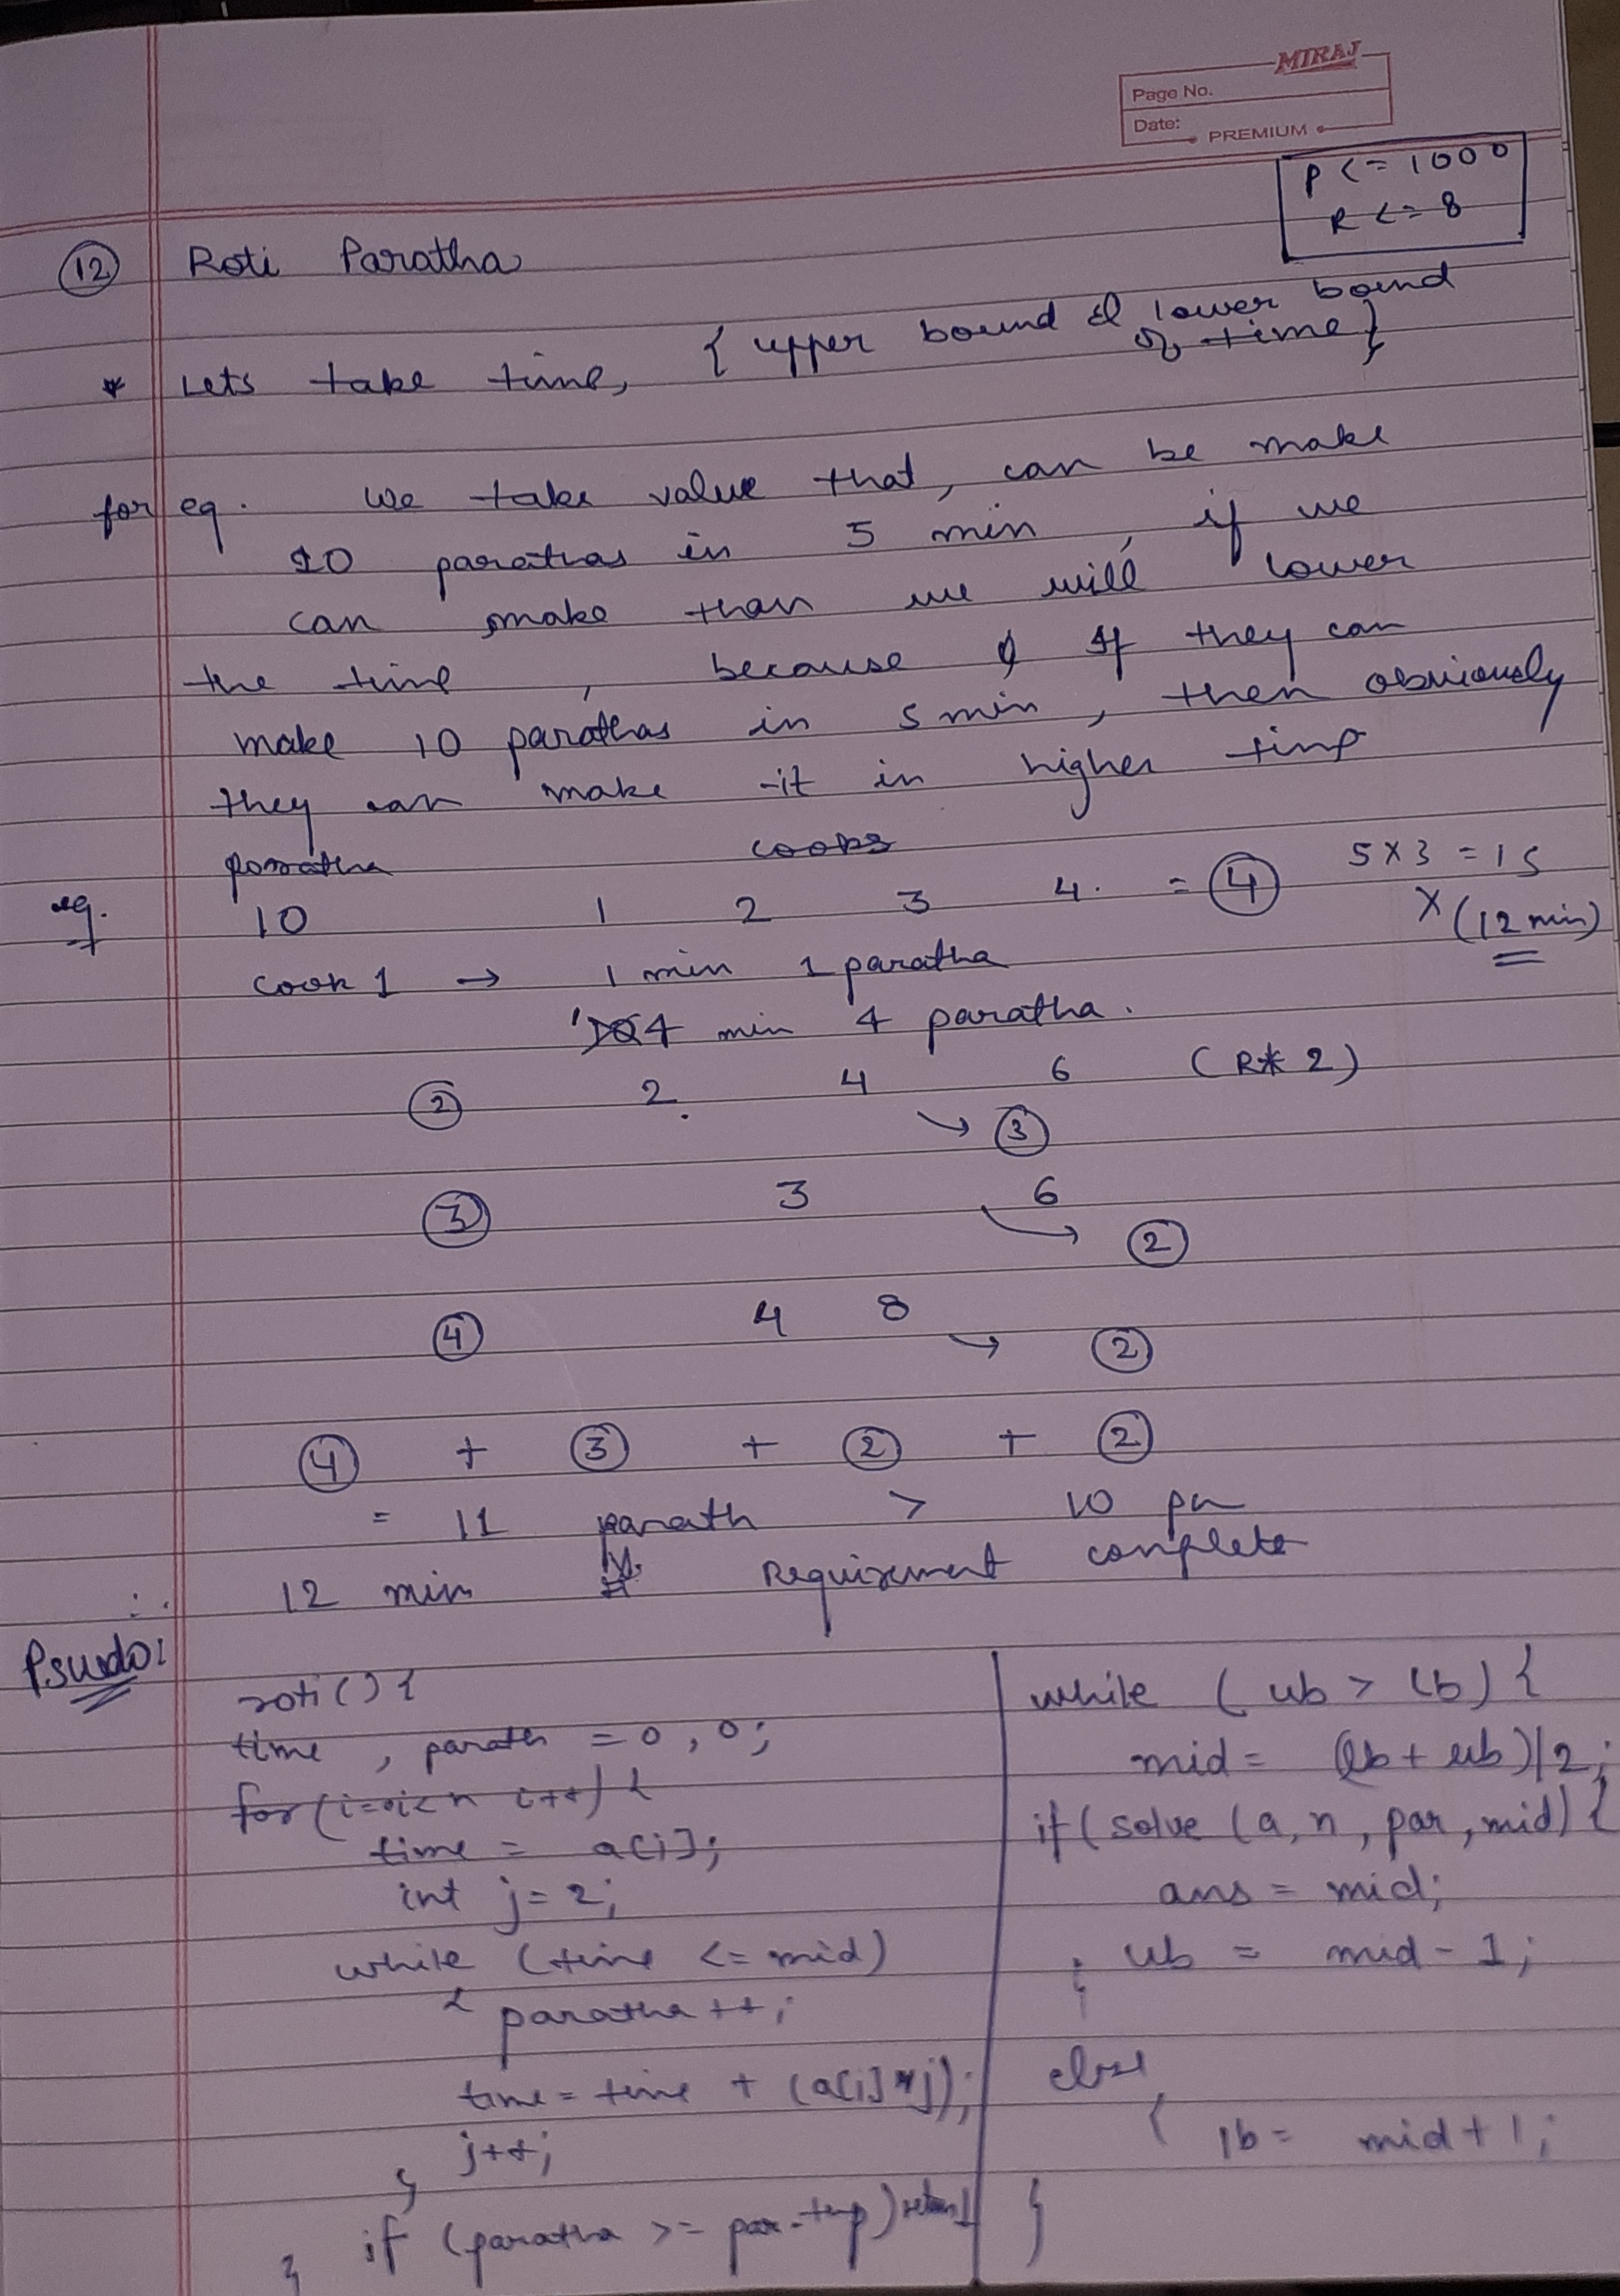 MIRAJ
Page No.
Date:
PREMIUM
P <= 1000
R <= 8
12 Roti Paratha
* Lets take time, { upper bound & lower bound
of time }
for eg. We take value that, can be make
10 parathas in 5 min, if we
can make than we will lower
the time, because If they can
make 10 parathas in 5 min, then obviously
they can make it in higher time
paratha cooks
eg. 10 1 2 3 4. = 4 5 x 3 = 15
x (12 min)
cook 1 → 1 min 1 paratha
4 min 4 paratha.
2 2. 4 6 (R * 2)
→ 3
3 3 6
→ 2
4 4 8
→ 2
4 + 3 + 2 + 2
= 11 parath > 10 pa
∴ 12 min Requirement complete
Psudo:
roti() {
time, parath = 0, 0;
for (i=0 i<n i++) {
time = a[i];
int j = 2;
while (time <= mid)
{ paratha ++;
time = time + (a[i] * j);
j++;
}
if (paratha >= par-temp) return 1
}
while (ub > lb) {
mid = (lb + ub)/2;
if (solve (a, n, par, mid) {
ans = mid;
ub = mid - 1;
}
else
{ lb = mid + 1;
}